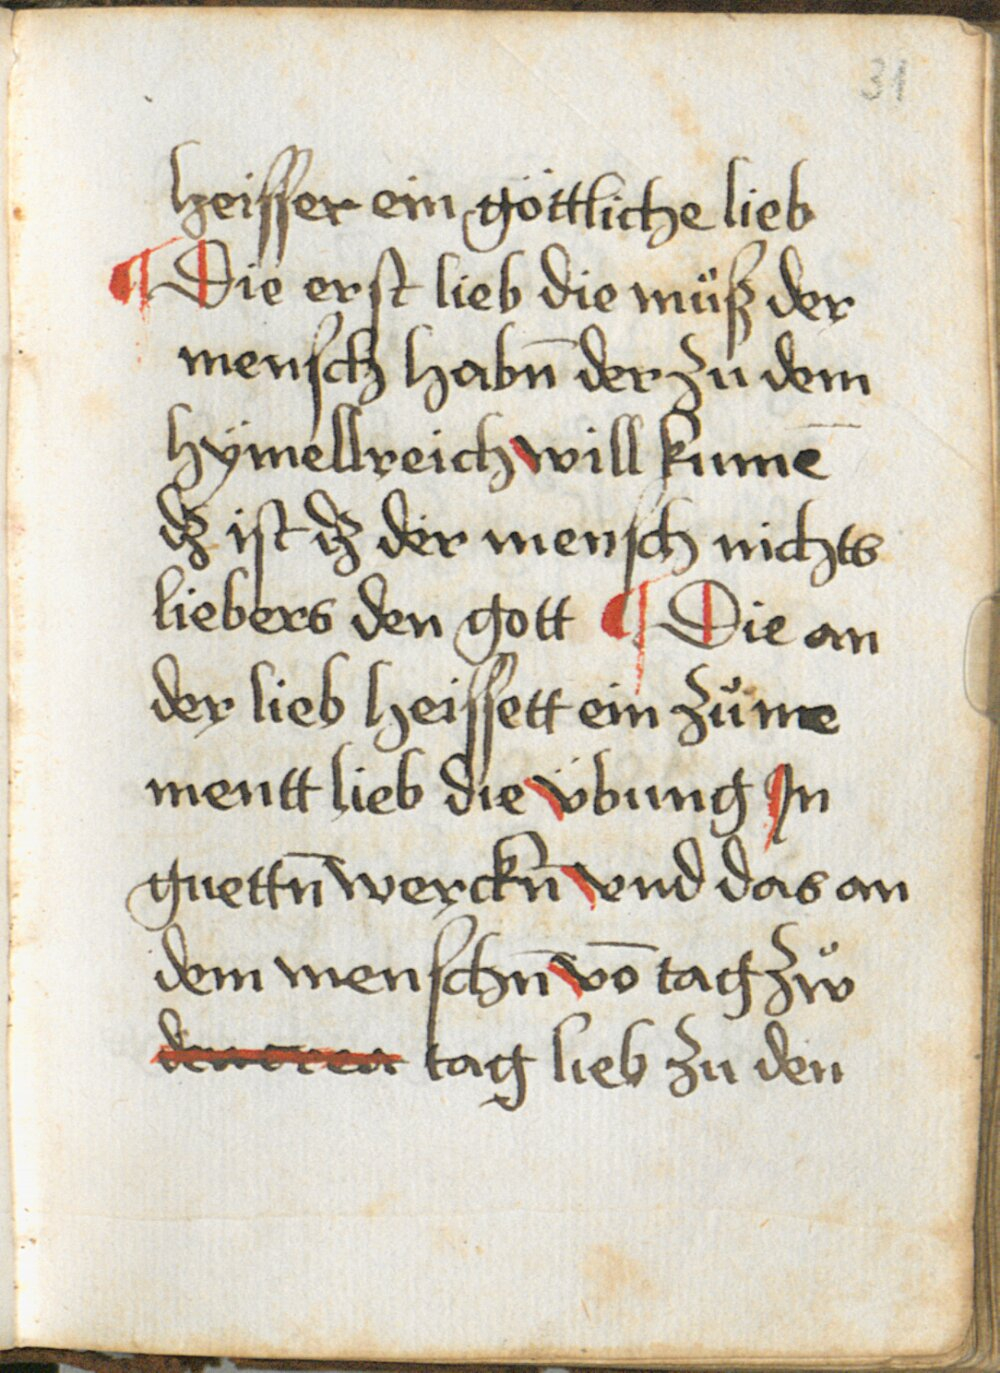 heisser ein göttliche lieb
¶ Die erst lieb die müß der
mensch habn̄ der zu dem
hÿmellreich will kumē
dz ist dz der mensch nichts
liebers den gott ¶ Die an
der lieb heissett ein zůne
mentt lieb die vbung Jn
guettn̄ werckn̄ vnd das an
dem menschn̄ vō tag zů
tag lieb zu den